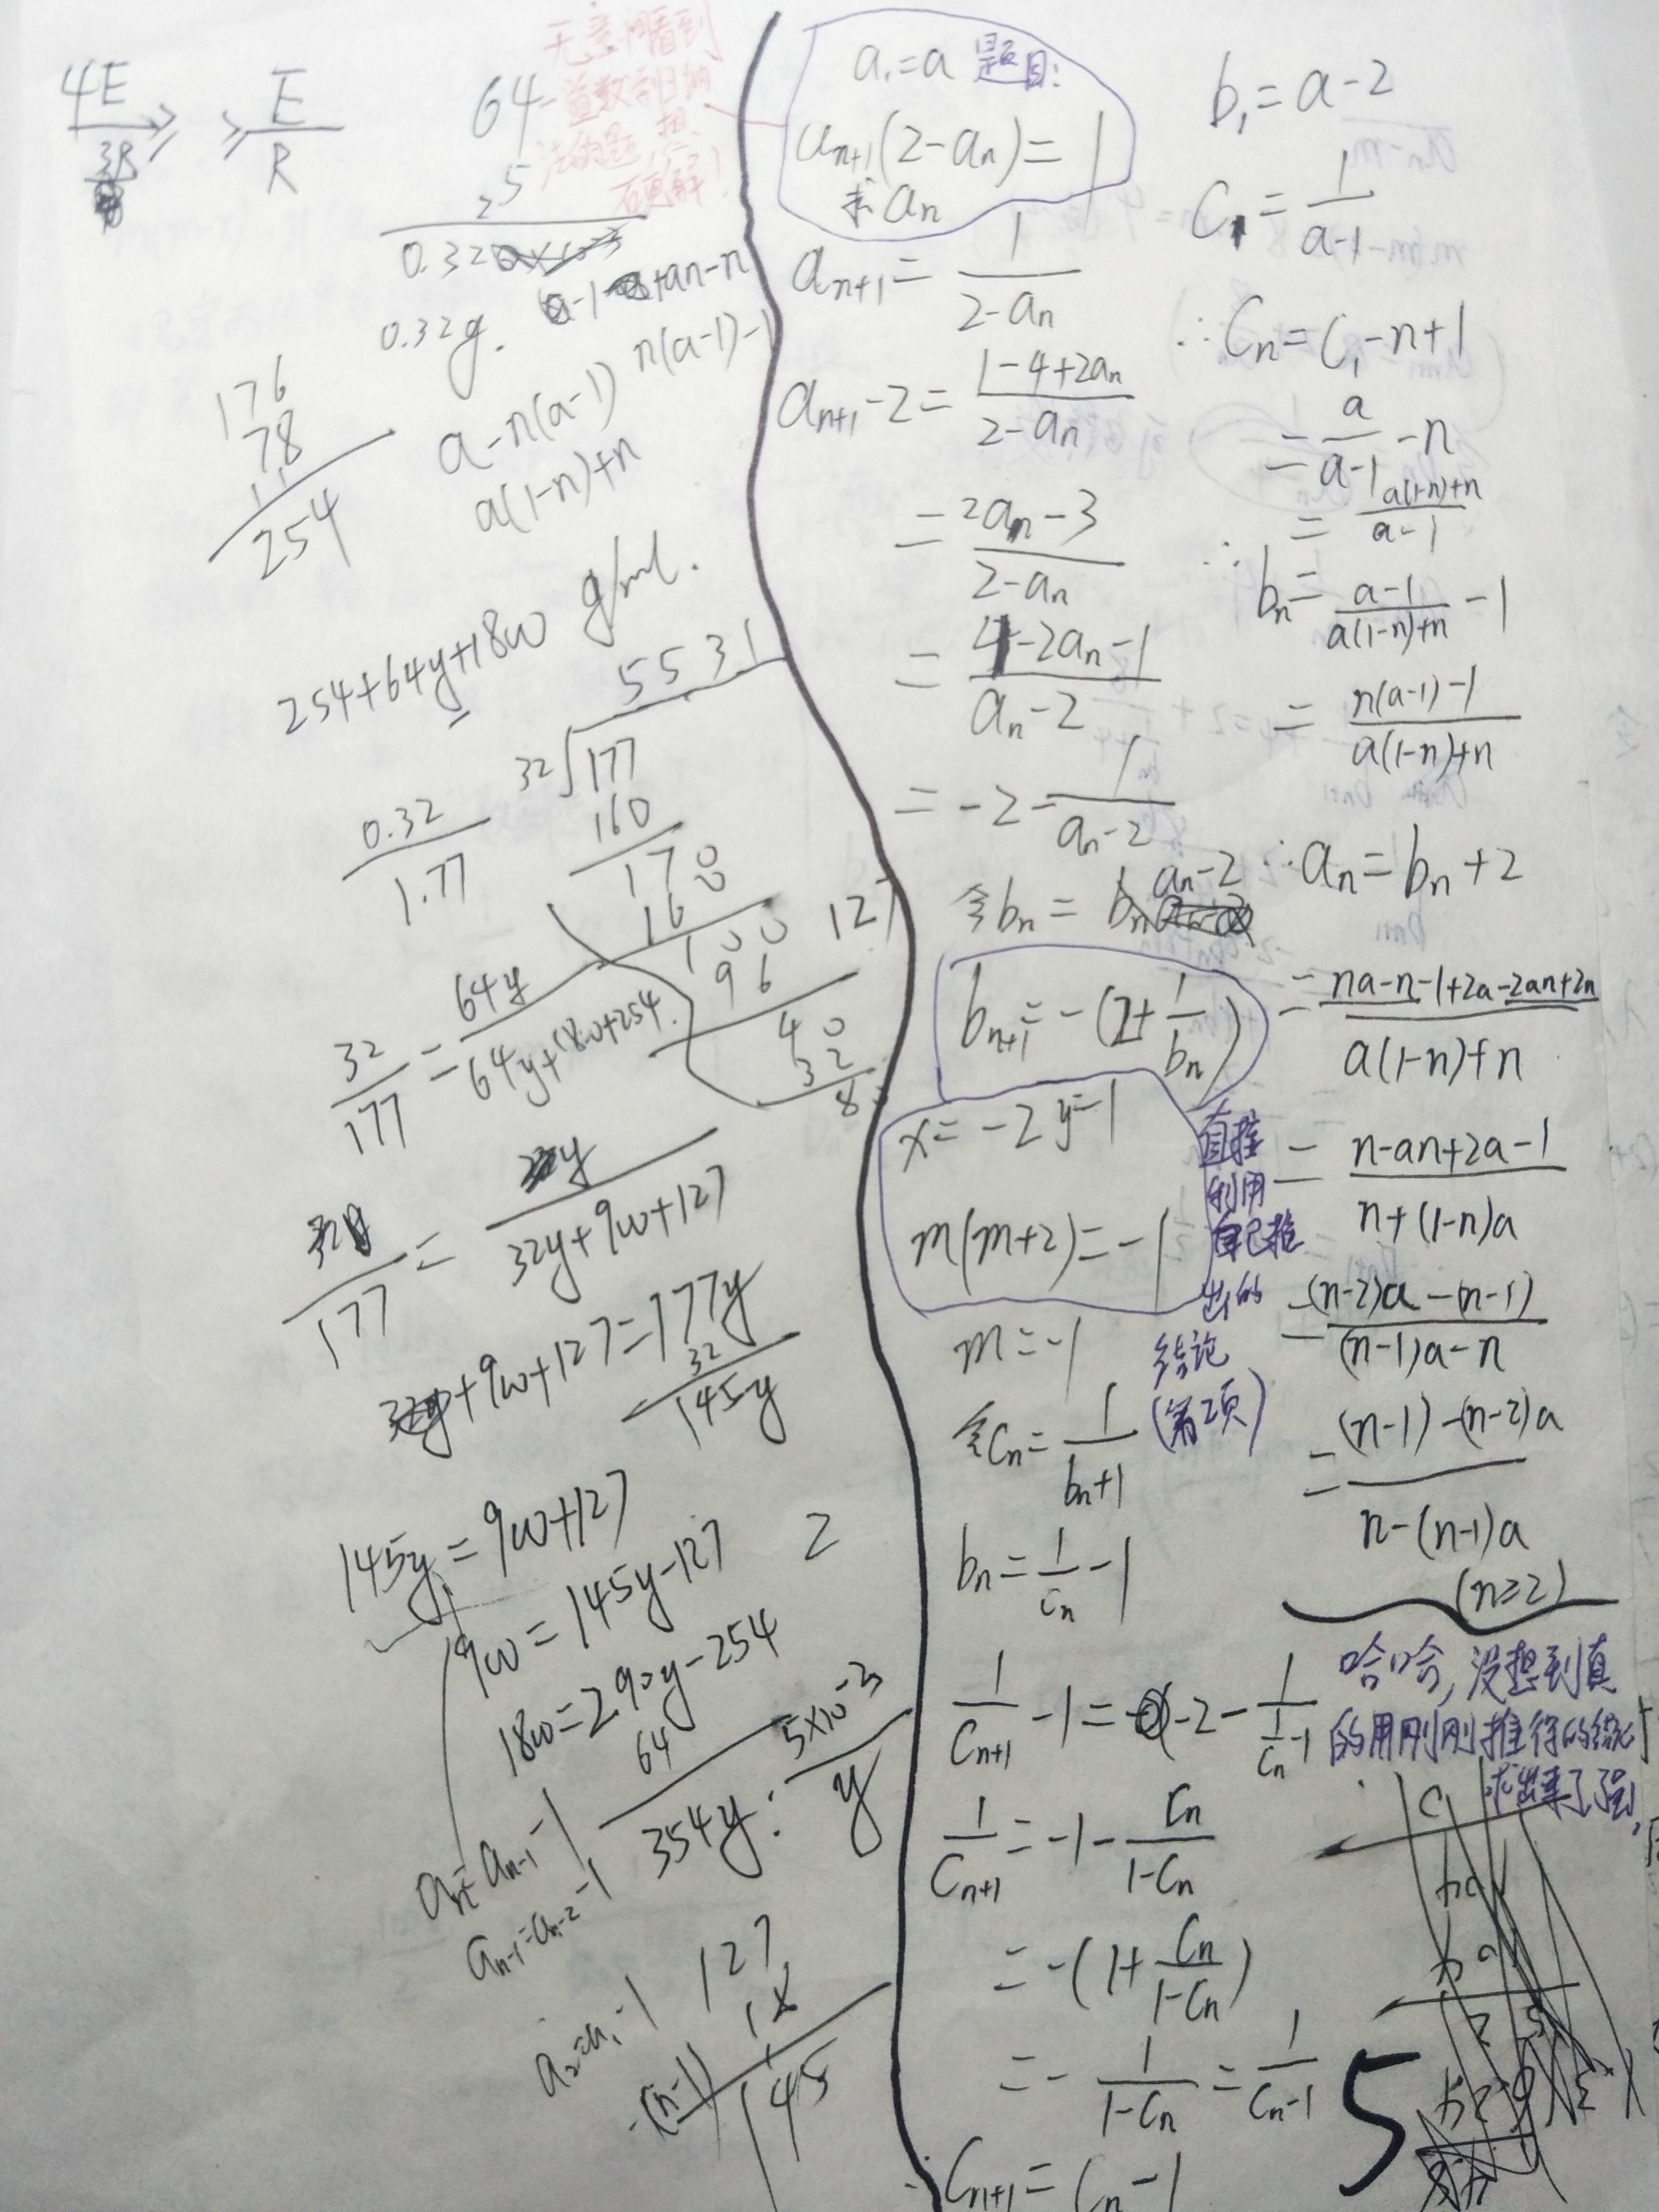 4E
3R
E
R
64
25
0.32
无意间看到
一道数学归纳
法的题,想
a-1 +an-n
0.32g.
n(a-1)-1
176
78
254
a-n(a-1)
a(1-n)+n
254+64y+18w g/ml.
5531
32 177
160
170
160
100
96
40
32
80
0.32
1.77
127
32/177 = 64y/(64y+18w+254)
/177 = y/(32y+9w+127)
+9w+127=177y
32
145y
145y=9w+127
9w=145y-127
2
18w=290y-254
64/354y : 5×10⁻³/y
aₙ=aₙ₋₁-1
aₙ₋₁=aₙ₋₂-1
a₂=a₁-1
-(n-1)
127
18
145
a₁=a 题目:
aₙ₊₁(2-aₙ)=1
求aₙ
aₙ₊₁=1/(2-aₙ)
aₙ₊₁-2=(1-4+2aₙ)/(2-aₙ)
=(2aₙ-3)/(2-aₙ)
=(4-2aₙ-1)/(aₙ-2)
=-2-1/(aₙ-2)
令bₙ=aₙ-2
bₙ₊₁=-(2+1/bₙ)
x=-2 y=-1
m(m+2)=-1
直接
利用
自己推
出的
结论
(第2项)
m=-1
令cₙ=1/(bₙ+1)
bₙ=1/cₙ-1
1/cₙ₊₁-1=-2-1/(1/cₙ-1)
1/cₙ₊₁=-1-cₙ/(1-cₙ)
=-(1+cₙ/(1-cₙ))
=-1/(1-cₙ)=1/(cₙ-1)
∴cₙ₊₁=cₙ-1
b₁=a-2
c₁=1/(a-1)
∴cₙ=c₁-n+1
=a/(a-1)-n
=(a(1-n)+n)/(a-1)
∴bₙ=(a-1)/(a(1-n)+n)-1
=(n(a-1)-1)/(a(1-n)+n)
∴aₙ=bₙ+2
=(na-n-1+2a-2an+2n)/(a(1-n)+n)
=(n-an+2a-1)/(n+(1-n)a)
=((n-2)a-(n-1))/((n-1)a-n)
=((n-1)-(n-2)a)/(n-(n-1)a)
(n≥2)
哈哈,没想到真
的用刚刚推得的结论
求出来了强,
5